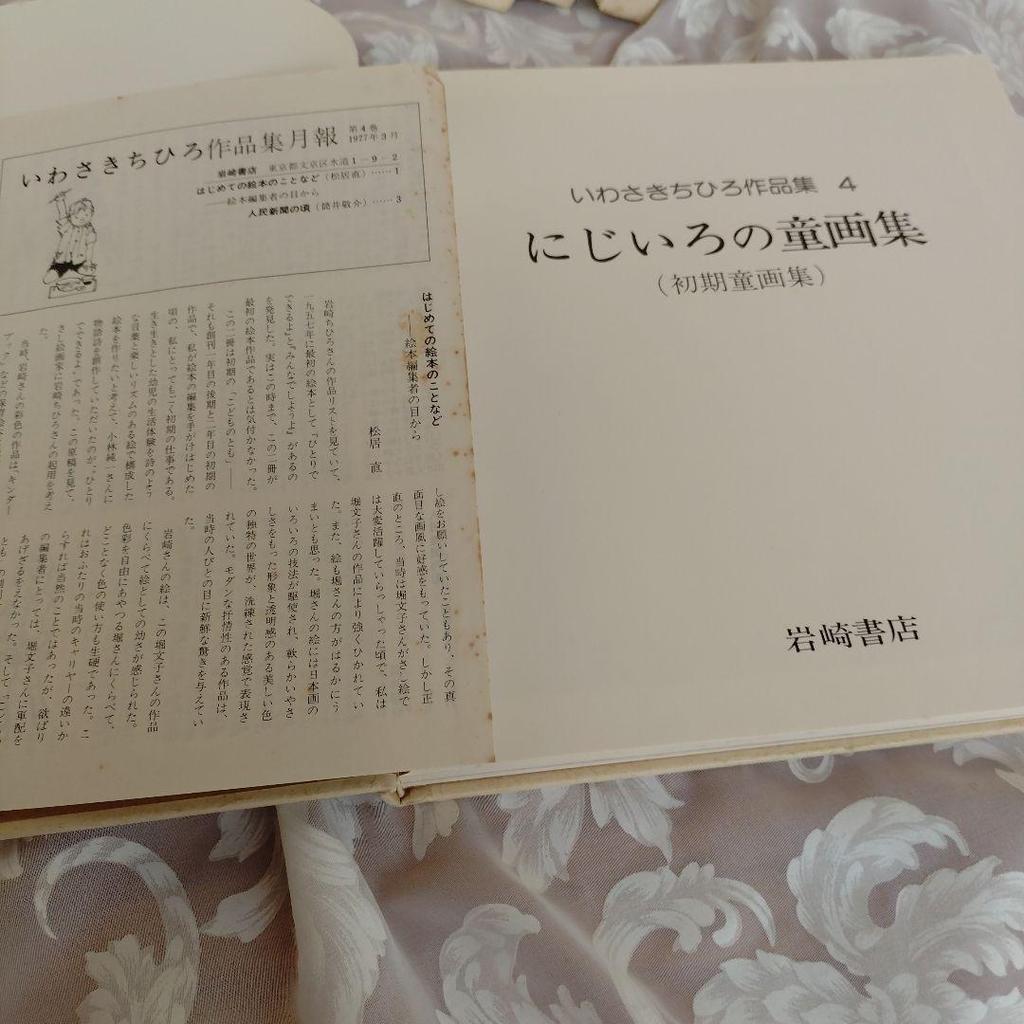 いわさきちひろ作品集月報
第4巻
1977年3月
岩崎書店 東京都文京区水道1-9-2
はじめての絵本のことなど(松居直)……1
――絵本編集者の目から
人民新聞の頃(筒井敬介)……3
はじめての絵本のことなど
――絵本編集者の目から
松居 直
岩崎ちひろさんの作品リストを見ていて、
一九五七年に最初の絵本として『ひとりで
できるよ』と『みんなでしようよ』があるの
を発見した。実はこの時まで、この二冊が
最初の絵本作品であるとは気付かなかった。
この二冊は初期の「こどものとも」――
それも創刊一年目の後期と二年目の初期の
作品で、私が絵本の編集を手がけはじめた
頃の、私にとってもごく初期の仕事である。
生き生きとした幼児の生活体験を詩のよう
な言葉と楽しいリズムのある絵で構成した
絵本を作りたいと考えて、小林純一さんに
物語詩を創作していただいたのが、『ひとり
でできるよ』であった。この原稿を見て、
さし絵画家に岩崎ちひろさんの起用を考え
た。
当時、岩崎さんの彩色の作品は「キンダー
し絵をお願いしていたこともあり、その真
面目な画風に好感をもっていた。しかし正
直のところ、当時は堀文子さんがさし絵で
は大変活躍していらっしゃった頃で、私は
堀文子さんの作品により強くひかれてい
た。また、絵も堀さんの方がはるかにう
まいとも思った。堀さんの絵には日本画の
いろいろの技法が駆使され、軟らかいやさ
しさをもった形象と透明感のある美しい色
の独特の世界が、洗練された感覚で表現さ
れていた。モダンな抒情性のある作品は、
当時の人びとの目に新鮮な驚きを与えてい
た。
岩崎さんの絵は、この堀文子さんの作品
にくらべて絵としての幼さが感じられた。
色彩を自由にあやつる堀さんにくらべて、
どことなく色の使い方も生硬であった。こ
れはおふたりの当時のキャリヤーの違いか
らすれば当然のことではあったが、欲ばり
の編集者にとっては、堀文子さんに軍配を
あげざるをえなかった。そして、
いわさきちひろ作品集 4
にじいろの童画集
(初期童画集)
岩崎書店